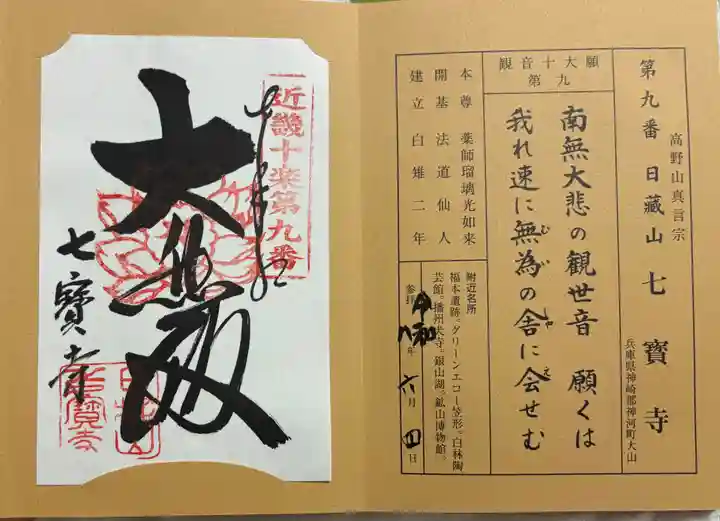 第九番 日蔵山 七寳寺
高野山真言宗
兵庫県神崎郡神河町大山
観音十大願
第九
南無大悲の観世音 願くは
我れ速に無為の舎に会せむ
むゐ
しゃ
え
本尊 薬師瑠璃光如来
開基 法道仙人
建立 白雉二年
附近名所
福本遺跡。グリーンエコー笠形。白林陶
芸館。播州犬寺。銀山湖。鉱山博物館。
参拝 令和 八年 六月 四日
近畿十楽第九番
七寳寺